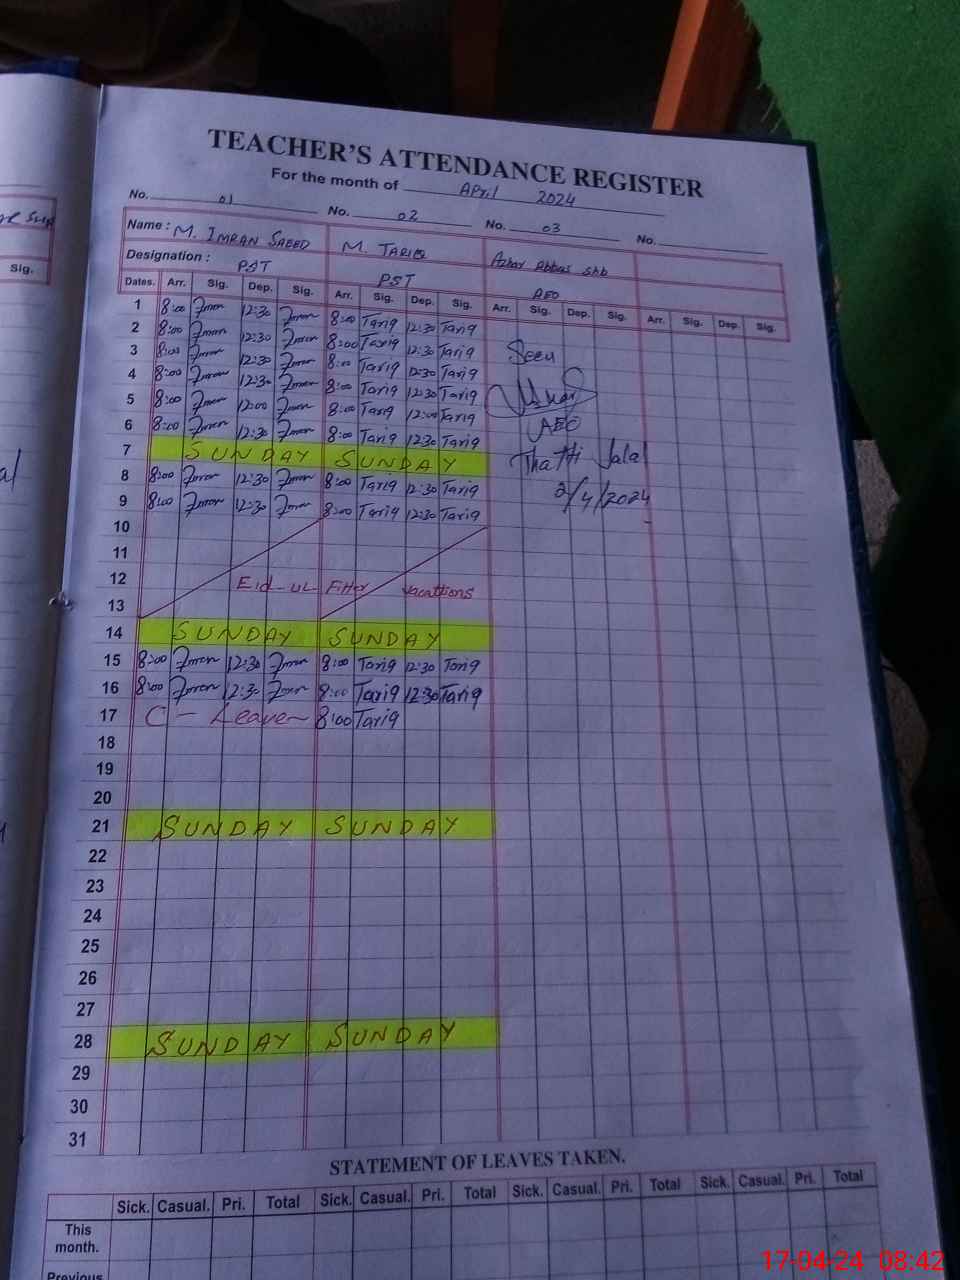 TEACHER'S ATTENDANCE REGISTER
For the month of April 2024
No. 01 No. 02 No. 03 No.
Name : M. IMRAN SAEED M. TARIQ Azhar Abbas shb
Designation : PST PST AEO
Dates. Arr. Sig. Dep. Sig. Arr. Sig. Dep. Sig. Arr. Sig. Dep. Sig. Arr. Sig. Dep. Sig.
Sig.
1 8:00 12:30 8:00 Tariq 12:30 Tariq
2 8:00 12:30 8:00 Tariq 12:30 Tariq
3 8:00 12:30 8:00 Tariq 12:30 Tariq Seen
4 8:00 12:30 8:00 Tariq 12:30 Tariq
5 8:00 12:00 8:00 Tariq 12:00 Tariq
6 8:00 12:30 8:00 Tariq 12:30 Tariq AEO
7 SUNDAY SUNDAY Thatti Jalal
8 8:00 12:30 8:00 Tariq 12:30 Tariq 2/4/2024
9 8:00 12:30 8:00 Tariq 12:30 Tariq
10
11
12 Eid-ul-Fitter vacattions
13
14 SUNDAY SUNDAY
15 8:00 12:30 8:00 Tariq 12:30 Tariq
16 8:00 12:30 8:00 Tariq 12:30 Tariq
17 C - Leave 8:00 Tariq
18
19
20
21 SUNDAY SUNDAY
22
23
24
25
26
27
28 SUNDAY SUNDAY
29
30
31
STATEMENT OF LEAVES TAKEN.
Sick. Casual. Pri. Total Sick. Casual. Pri. Total Sick. Casual. Pri. Total Sick. Casual. Pri. Total
This
month.
Previous
17-04-24 08:42